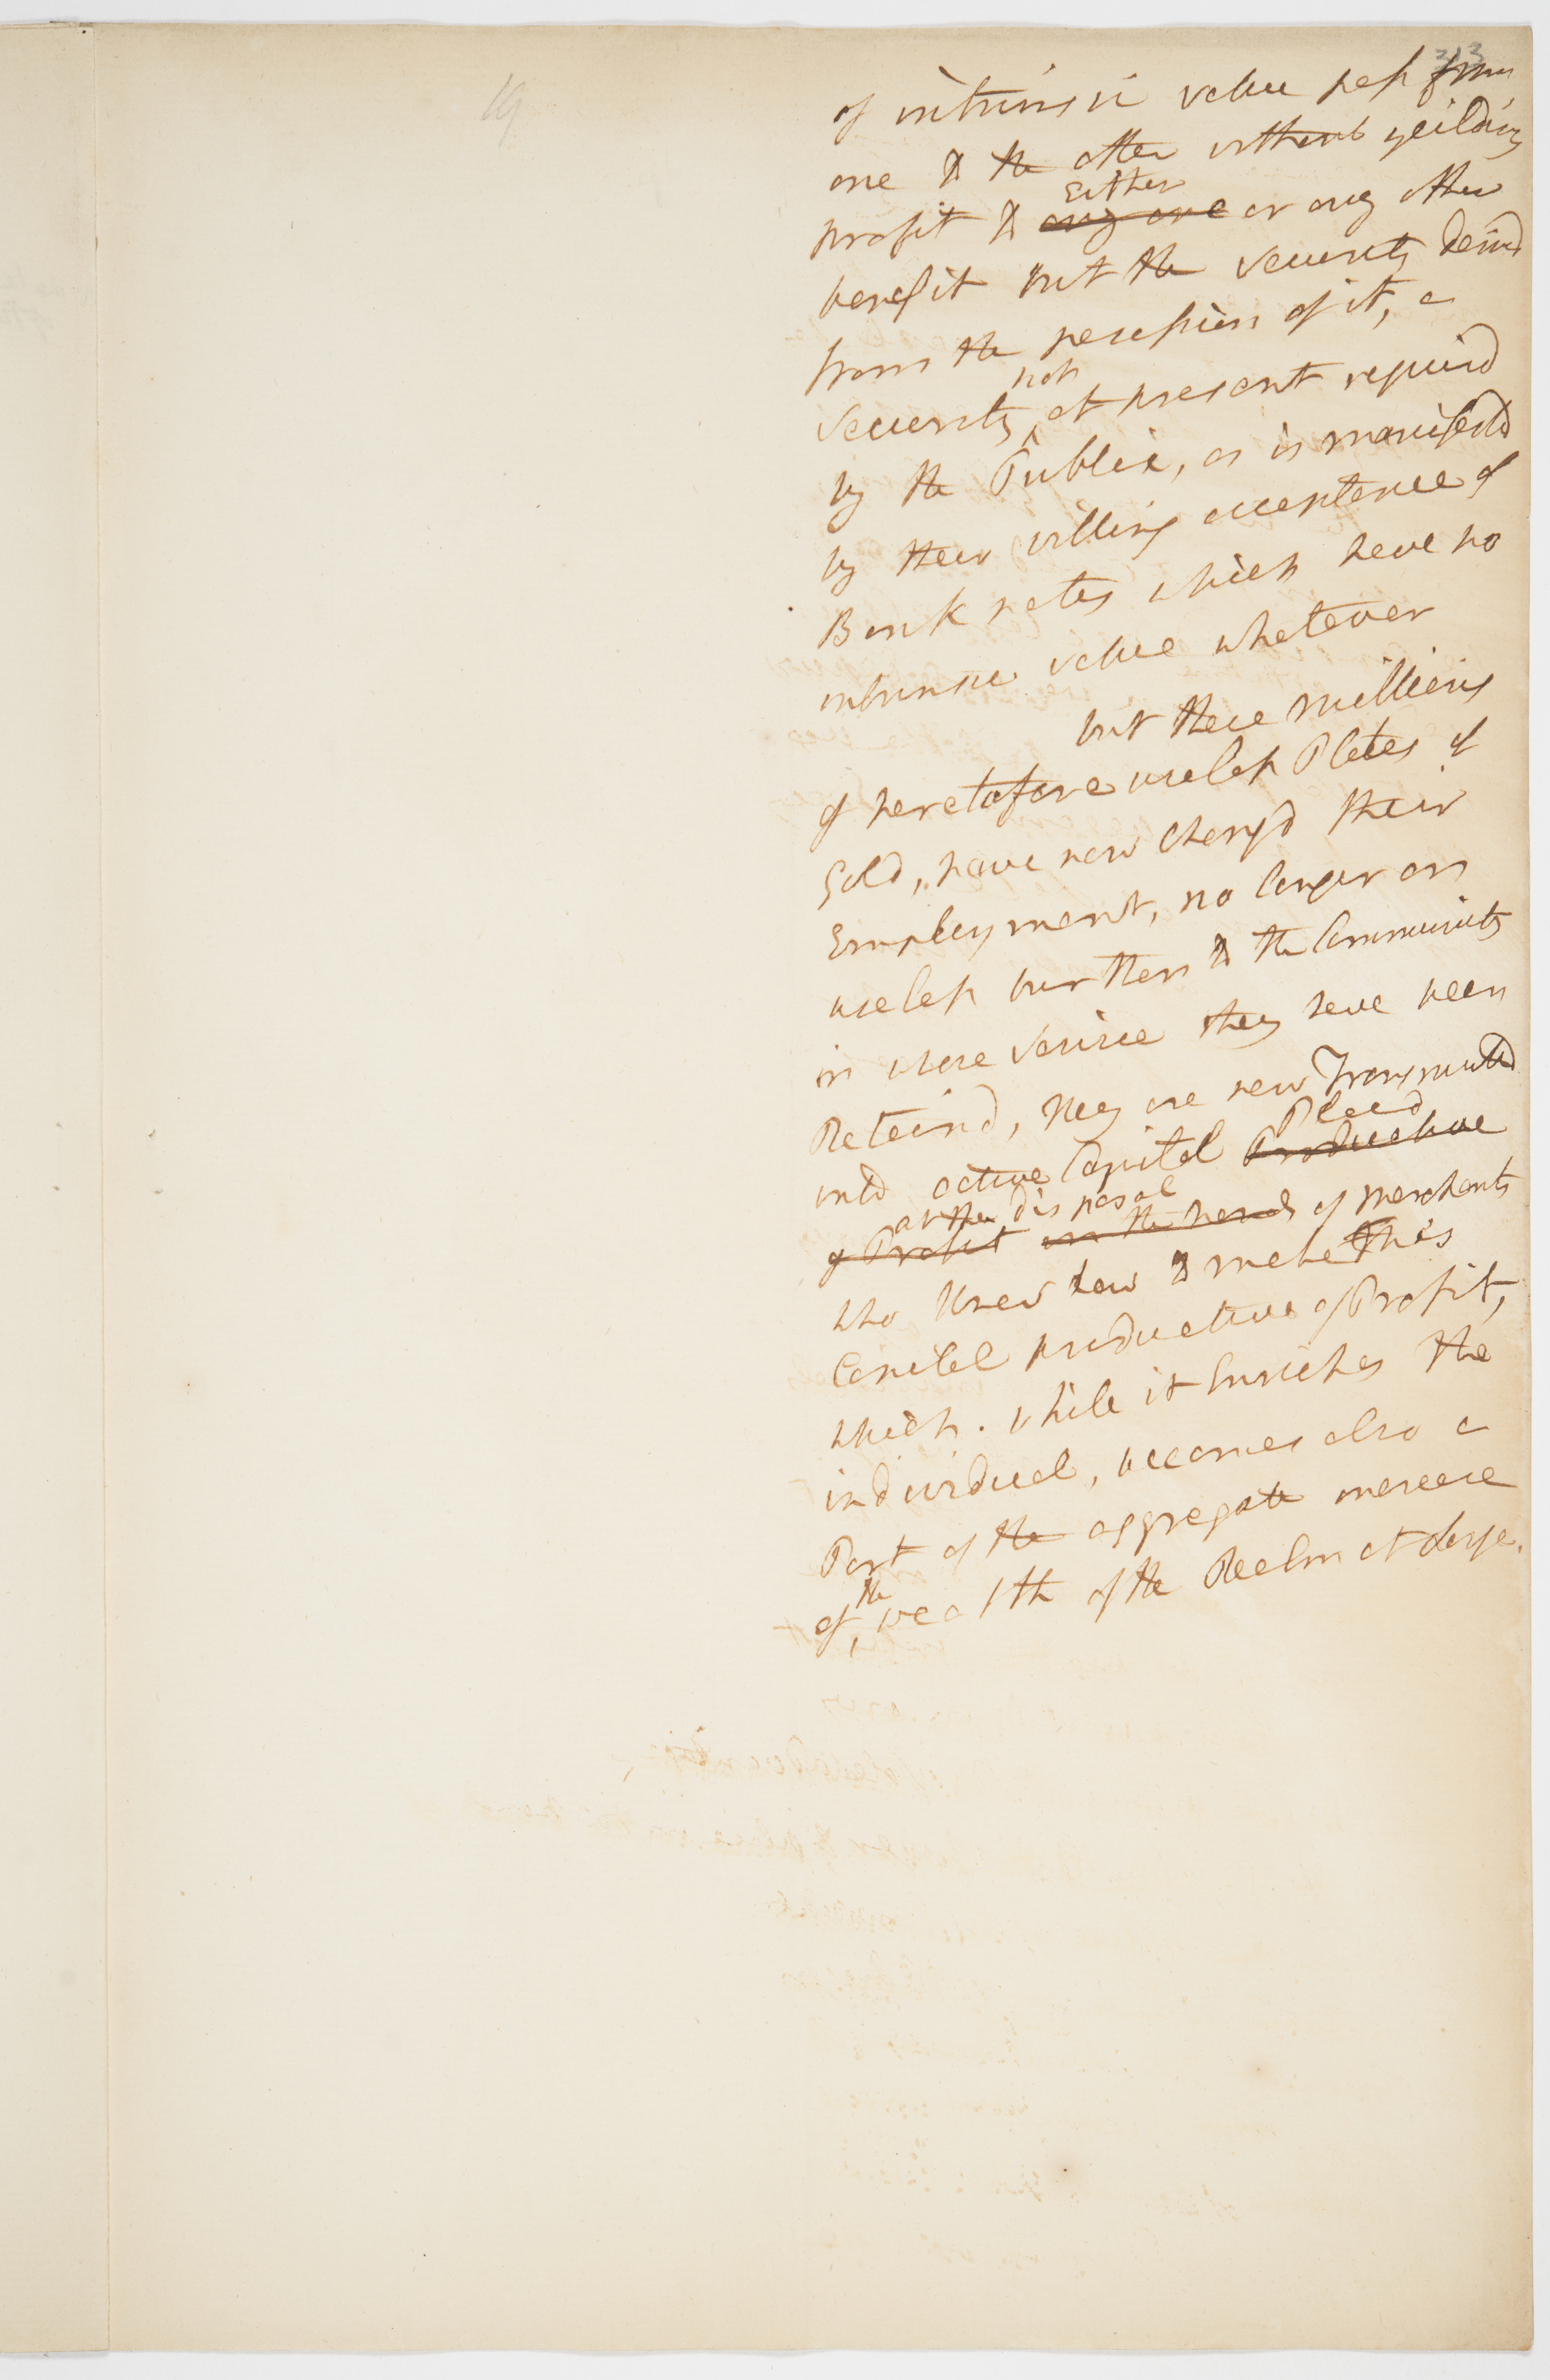 313
19
of intrinsic value pass from
one to the other without yeilding
Either
profit to any one or any other
benefit but the security derivd
from the possession of it, a
not
security at present requird
by the Public, as is manifested
by their willing acceptance of
Bank notes which have no
intrinsic value whatever
but these millions
of heretofore useless Plates of
Gold, have now changd their
Employment, no longer an
useless burthen to the Community
in whose service they have been
Retaind, they are now Transmuted
Placd
into active Capital Productive
at the disposal
of Profit in the hands of Merchants
who know how to make this
Capital productive of Profit,
which. while it Enriches the
individual, becomes also a
Part of the aggregate increase
the
of wealth of the Realm at Large.